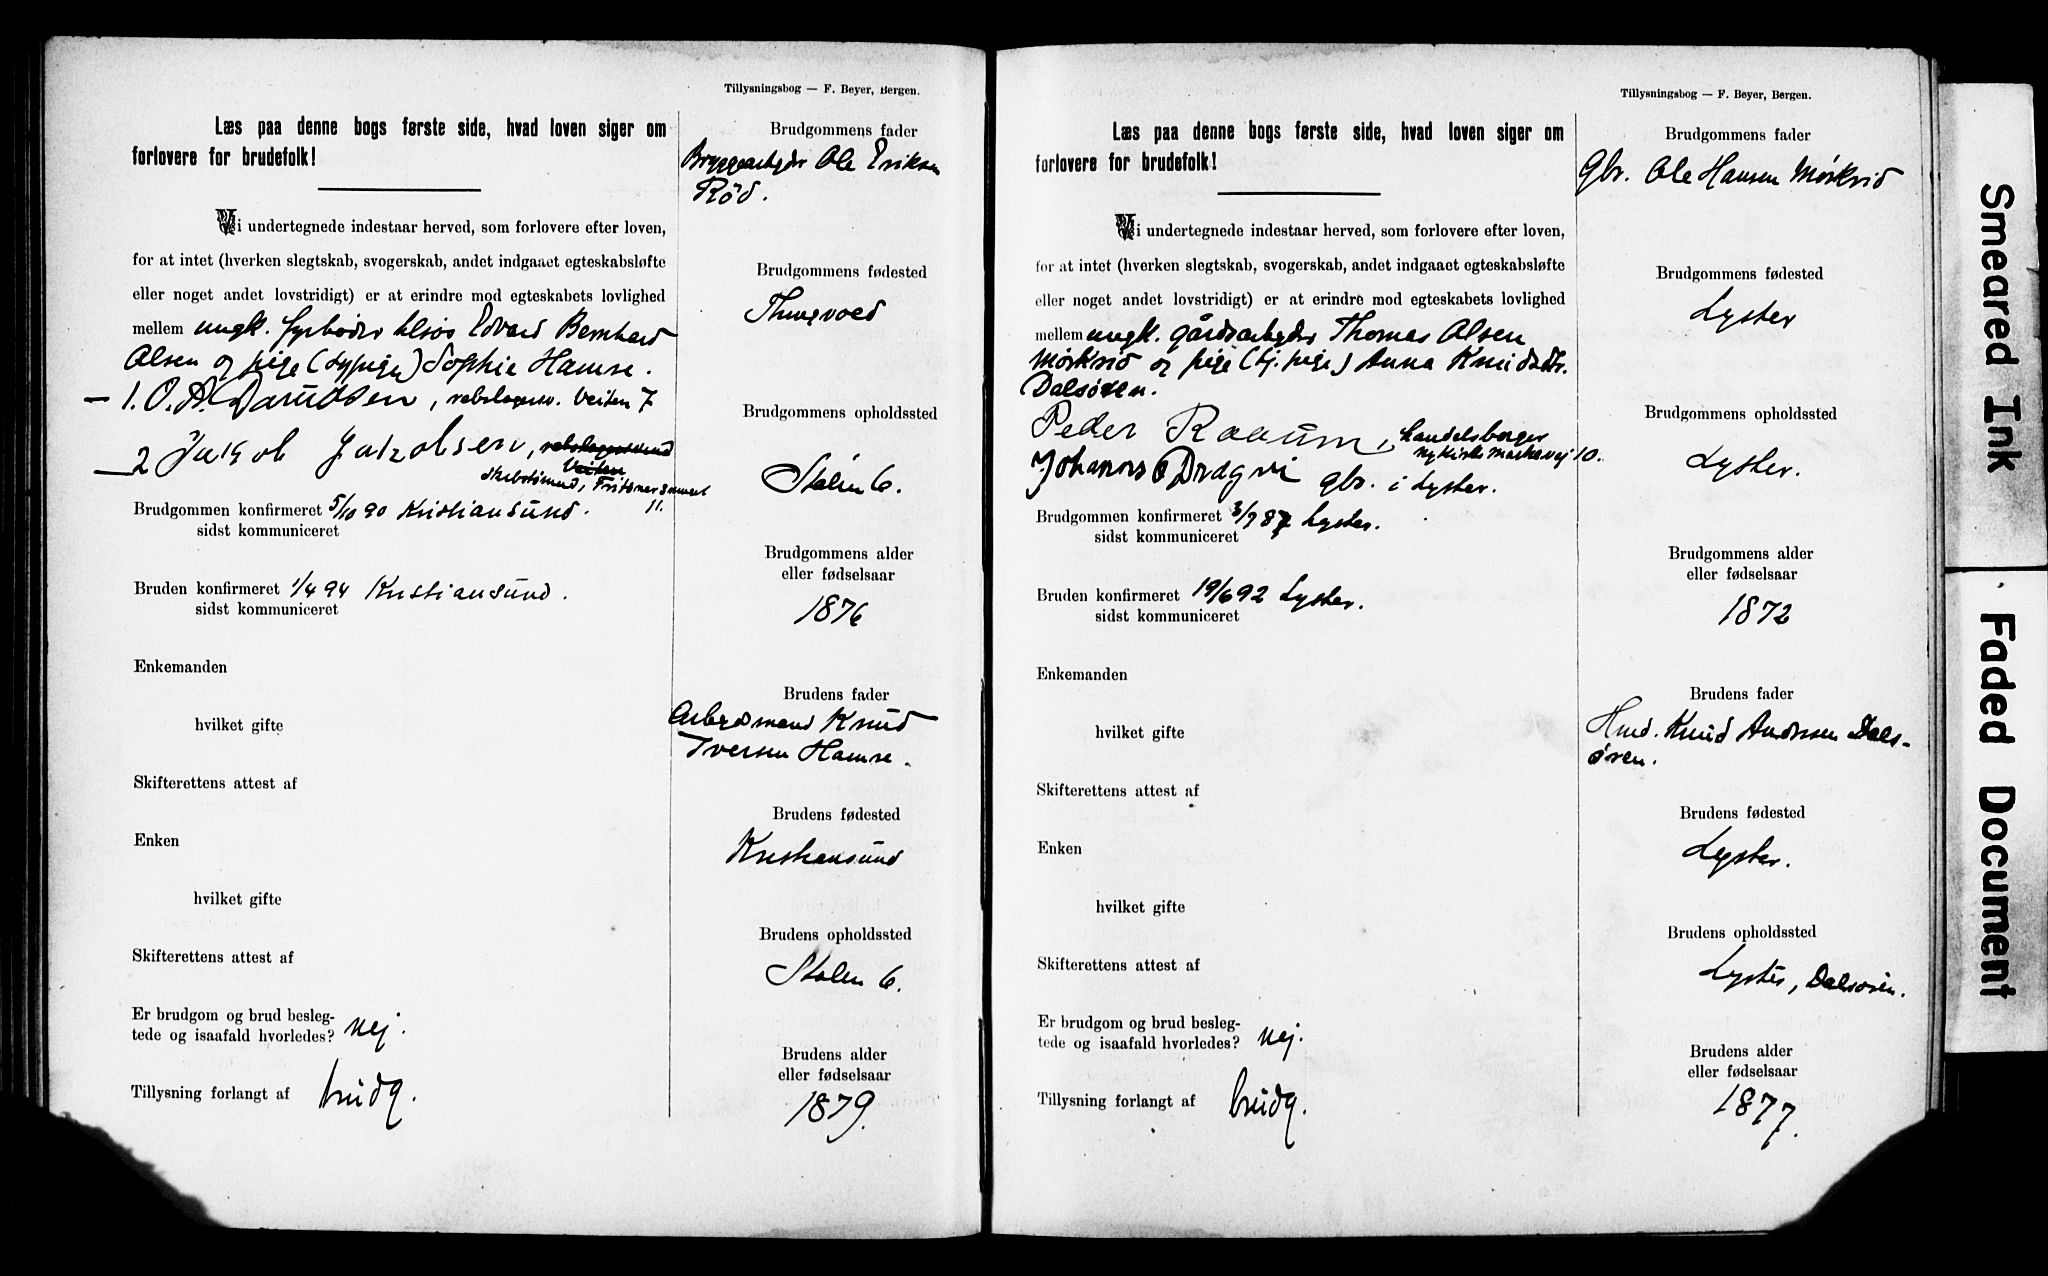 Tillysningsbog — F. Beyer, Bergen.
Læs paa denne bogs første side, hvad loven siger om
forlovere for brudefolk!
Vi undertegnede indestaar herved, som forlovere efter loven,
for at intet (hverken slegtskab, svogerskab, andet indgaaet egteskabsløfte
eller noget andet lovstridigt) er at erindre mod egteskabets lovlighed
mellem ungk. fyrbøder Edvard Bernhard
Olsen og pige Sophie Hamre.
1. O. A. Davidsen, rebslagersv. Veiten 7
2 Jakob Jakobsen, rebslagersvend
Veiten
11.
Brudgommen konfirmeret 5/10 90 Kristiansund.
sidst kommuniceret
Bruden konfirmeret 1/4 94 Kristiansund.
sidst kommuniceret
Enkemanden
hvilket gifte
Skifterettens attest af
Enken
hvilket gifte
Skifterettens attest af
Er brudgom og brud besleg-
tede og isaafald hvorledes? nej.
Tillysning forlangt af brudg.
Brudgommens fader
Bryggearbeider Ole Eriksen
Rød.
Brudgommens fødested
Thingvold
Brudgommens opholdssted
Stølen 6.
Brudgommens alder
eller fødselsaar
1876
Brudens fader
Arbeidsmand Knud
Iversen Hamre.
Brudens fødested
Kristiansund
Brudens opholdssted
Stølen 6.
Brudens alder
eller fødselsaar
1879.
Tillysningsbog — F. Beyer, Bergen.
Læs paa denne bogs første side, hvad loven siger om
forlovere for brudefolk!
Vi undertegnede indestaar herved, som forlovere efter loven,
for at intet (hverken slegtskab, svogerskab, andet indgaaet egteskabsløfte
eller noget andet lovstridigt) er at erindre mod egteskabets lovlighed
mellem ungk. gårdsarbeider Thomas Olsen
Mørkrid og pige (tj. pige) Anna Knudsdtr.
Dalsøren.
Peder Raaum, handelsborger
Nykirke Markevej 10.
Johannes O Drægni gbr. i Lyster.
Brudgommen konfirmeret 3/7 87 Lyster.
sidst kommuniceret
Bruden konfirmeret 19/6 92 Lyster.
sidst kommuniceret
Enkemanden
hvilket gifte
Skifterettens attest af
Enken
hvilket gifte
Skifterettens attest af
Er brudgom og brud besleg-
tede og isaafald hvorledes? nej.
Tillysning forlangt af brudg.
Brudgommens fader
Gbr. Ole Hansen Mørkrid
Brudgommens fødested
Lyster
Brudgommens opholdssted
Lyster.
Brudgommens alder
eller fødselsaar
1872
Brudens fader
Hmd. Knud Andersen Dals-
øren.
Brudens fødested
Lyster.
Brudens opholdssted
Lyster, Dalsøren.
Brudens alder
eller fødselsaar
1877.
Smeared Ink
Faded Document